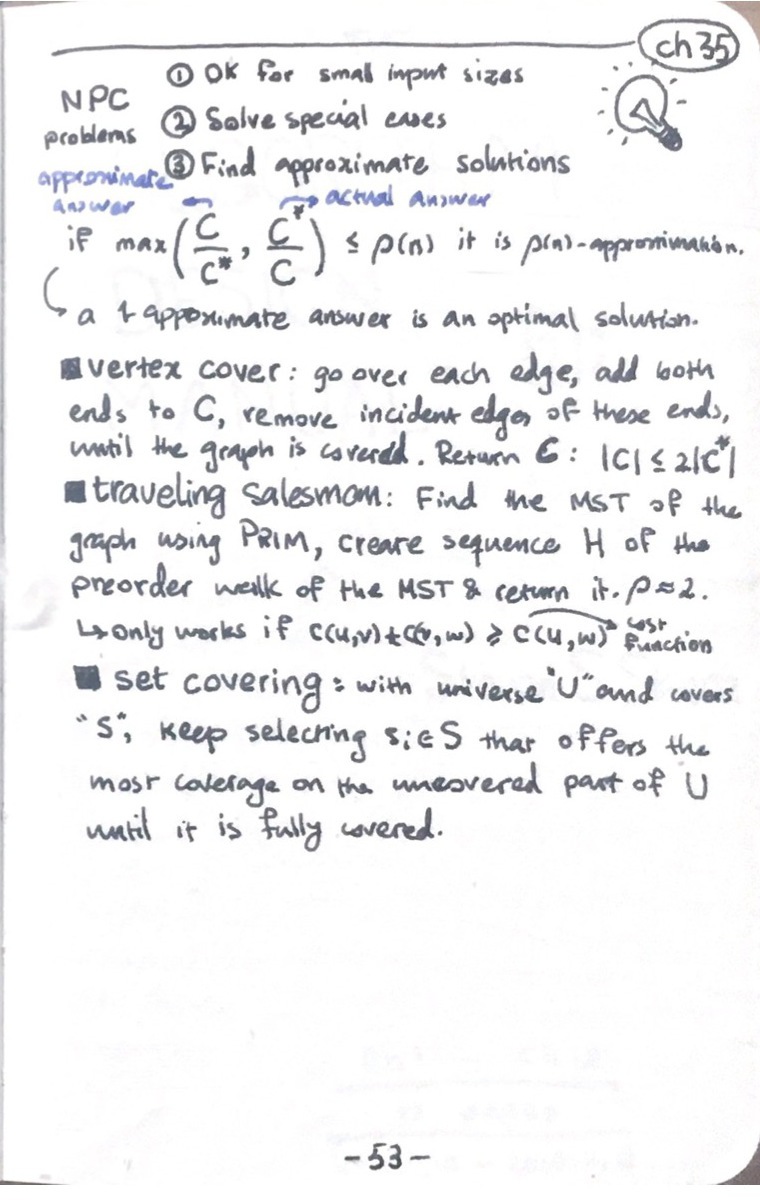 ch 35
NPC problems
① OK for small input sizes
② Solve special cases
③ Find approximate solutions
approximate answer
actual answer
if max(C/C*, C*/C) ≤ ρ(n) it is ρ(n)-approximation.
a 1-approximate answer is an optimal solution.
■ vertex cover: go over each edge, add both
ends to C, remove incident edges of these ends,
until the graph is covered. Return C: |C| ≤ 2|C*|
■ traveling salesmom: Find the MST of the
graph using PRIM, create sequence H of the
preorder walk of the MST & return it. ρ≈2.
↳ only works if c(u,v)+c(v,w) ≥ c(u,w) → cost function
■ set covering: with universe "U" and covers
"S", keep selecting sᵢ∈S that offers the
most coverage on the uncovered part of U
until it is fully covered.
-53-